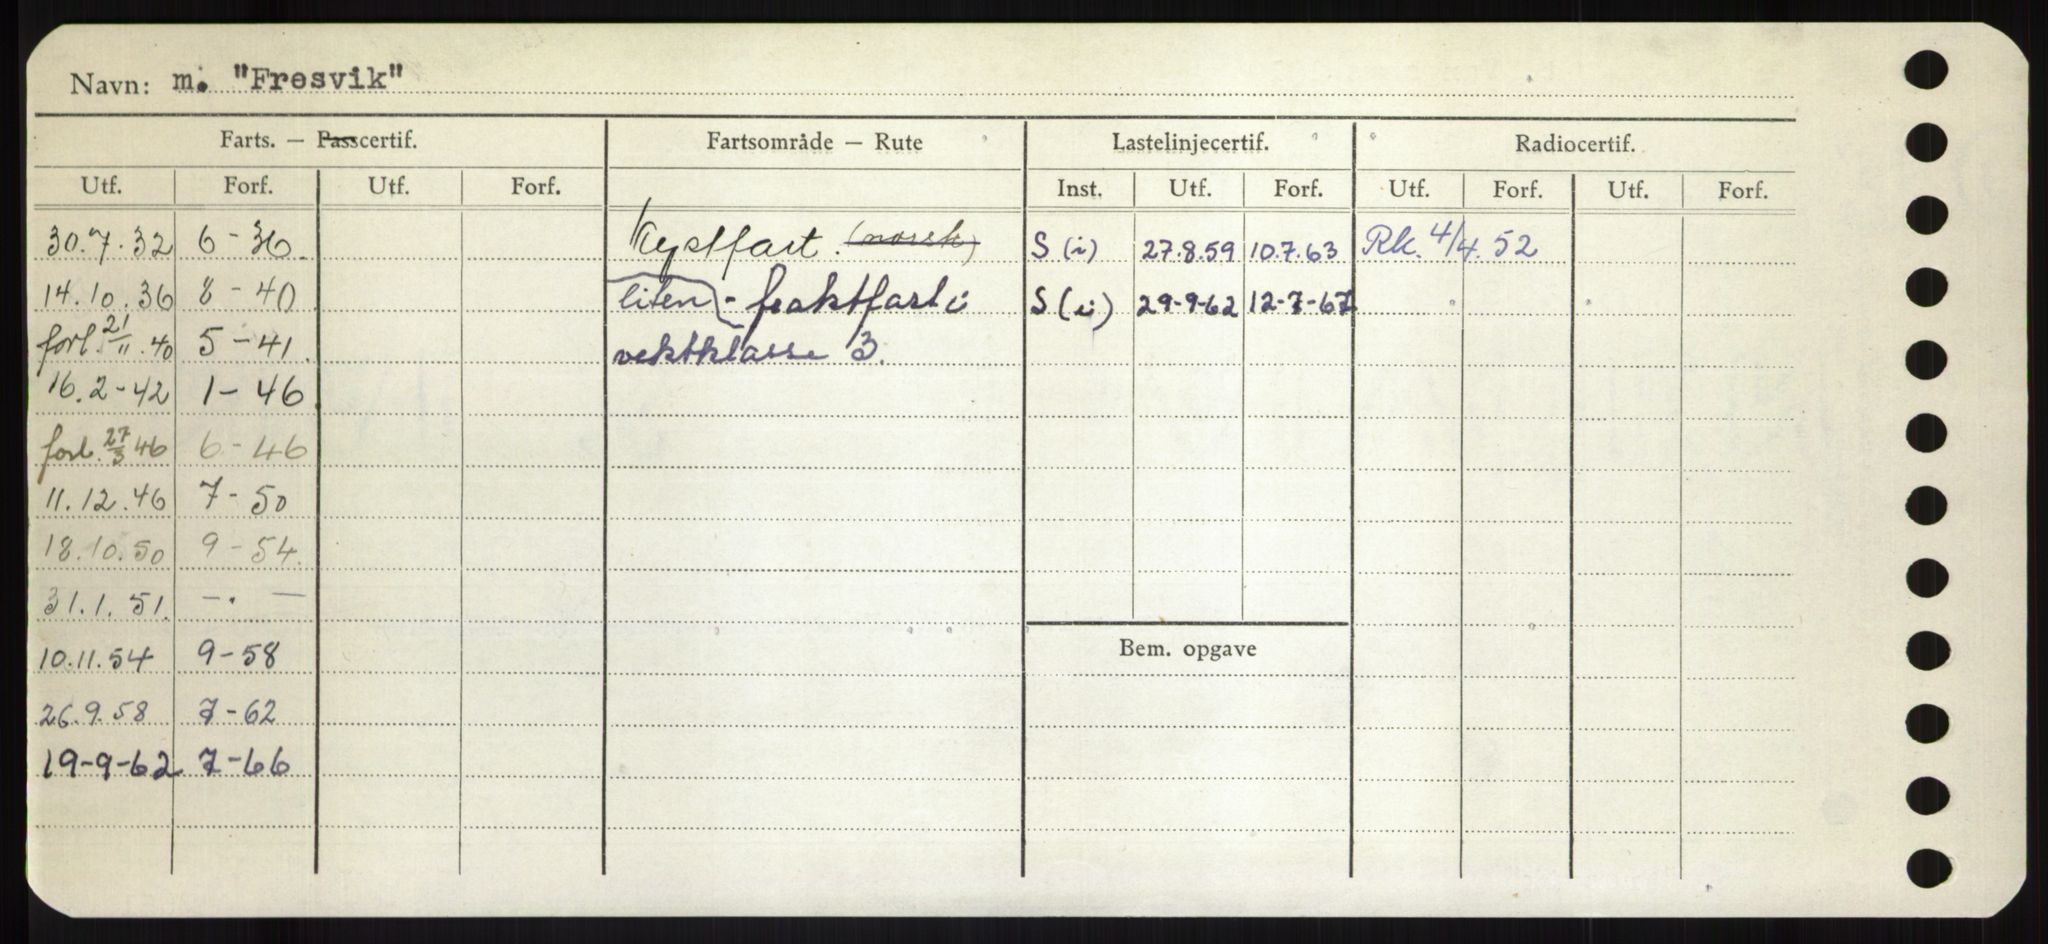 Navn: m. "Fresvik"
Farts. — Passcertif. Fartsområde — Rute Lastelinjecertif. Radiocertif.
Utf. Forf. Utf. Forf. Inst. Utf. Forf. Utf. Forf. Utf. Forf.
30.7.32 6-36. Kystfart. (norsk) S (i) 27.8.59 10.7.63 Rk. 4/4.52
14.10.36 8-40 liten - fraktfart i S (i) 29-9-62 12-7-67
forl. 21/11.40 5-41. vektklasse 3.
16.2-42 1-46
forl. 27/3 46 6-46
11.12.46 7-50
18.10.50 9-54.
31.1.51. -.-
Bem. opgave
10.11.54 9-58
26.9.58 7-62
19-9-62 7-66